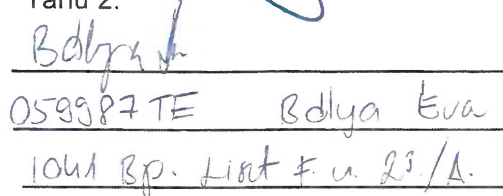 Tanú 2.
Bolya
059987TE Bolya Eva
1041 Bp. Liszt F. u. 23./A.